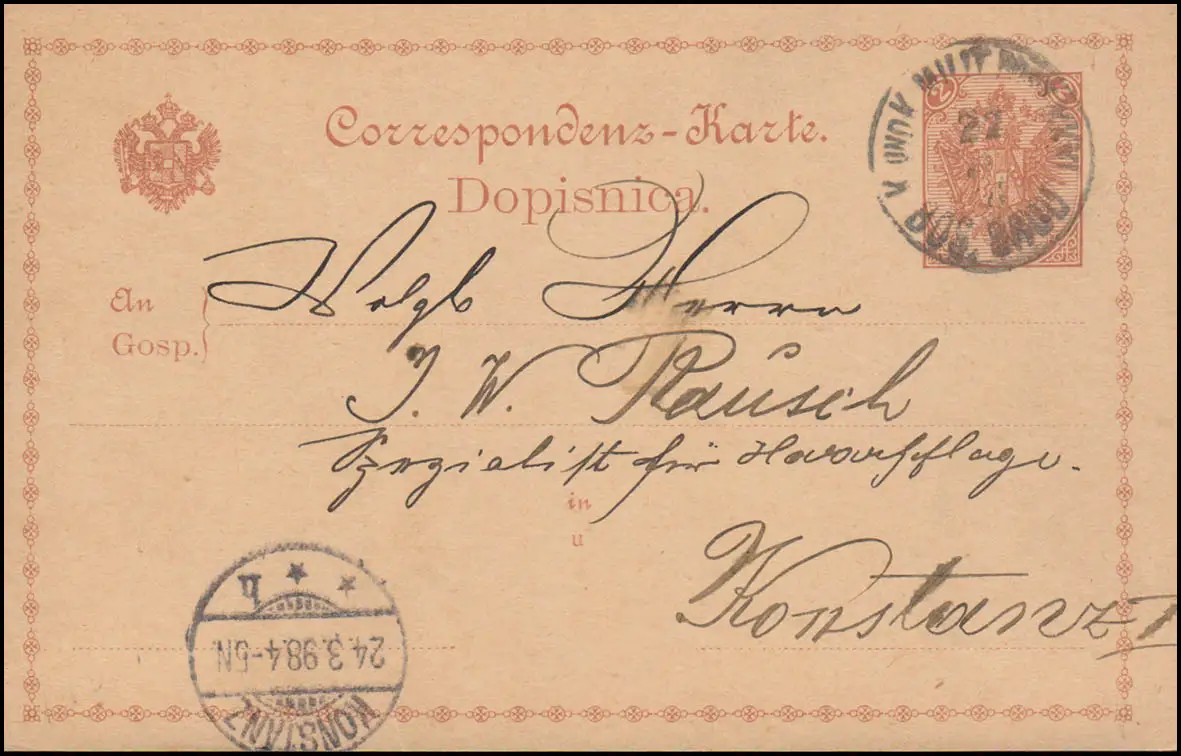 Correspondenz-Karte.
Dopisnica.
2 2
K UND K MILIT POST
22
An Wolgb Herrn
Gosp.
J. W. Rausch
Spezialist für Haarpflege.
in
u
Konstanz
KONSTANZ
24.3.98.4-5N.
* *